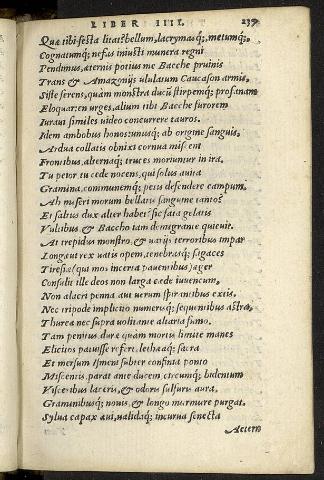 LIBER IIII. 239
Quæ tibi festa litat? bellum, lacrymasq;, metumq;,
Cognatumq; nefas iniusti munera regni
Pendimus, æternis potius me Bacche pruinis
Trans & Amazonijs ululatum Caucason armis,
Siste ferens, quàm monstra ducũ stirpemq; profanam
Eloquar: en urges, alium tibi Bacche furorem
Iuraui similes uideo concurrere tauros.
Idem ambobus honos: unusq; ab origine sanguis,
Ardua collatis obnixi cornua miscent
Frontibus, alternaq; truces moriuntur in ira,
Tu peior, tu cede nocens, qui solus auita
Gramina, communemq; petis defendere campum,
Ah miseri morum bellatis sanguine tantos
Et saltus dux alter habet: sic fata gelatis
Vultibus & Baccho iam demigrante quieuit.
At trepidus monstro, & uarijs terroribus impar
Longæui rex uatis opem, tenebrasq; sagaces
Tiresiæ (qui mos incerta pauentibus) æger
Consulit ille deos non larga cæde iuuencum,
Non alacri penna aut uerum spirantibus extis,
Nec tripode implicito numerisq; sequentibus astra,
Thurea nec supra uolitante altaria fumo.
Tam penitus, duræ quàm mortis limite manes
Elicitos patuisse refert, lethæaq; sacra
Et mersum Ismeni subter confinia ponto
Miscentis, parat ante ducem, circumq; bidentum
Visceribus laceris, & odori sulfuris aura,
Graminibusq; nouis, & longo murmure purgat.
Sylua capax æui, ualidaq; incurua senecta
Aetern